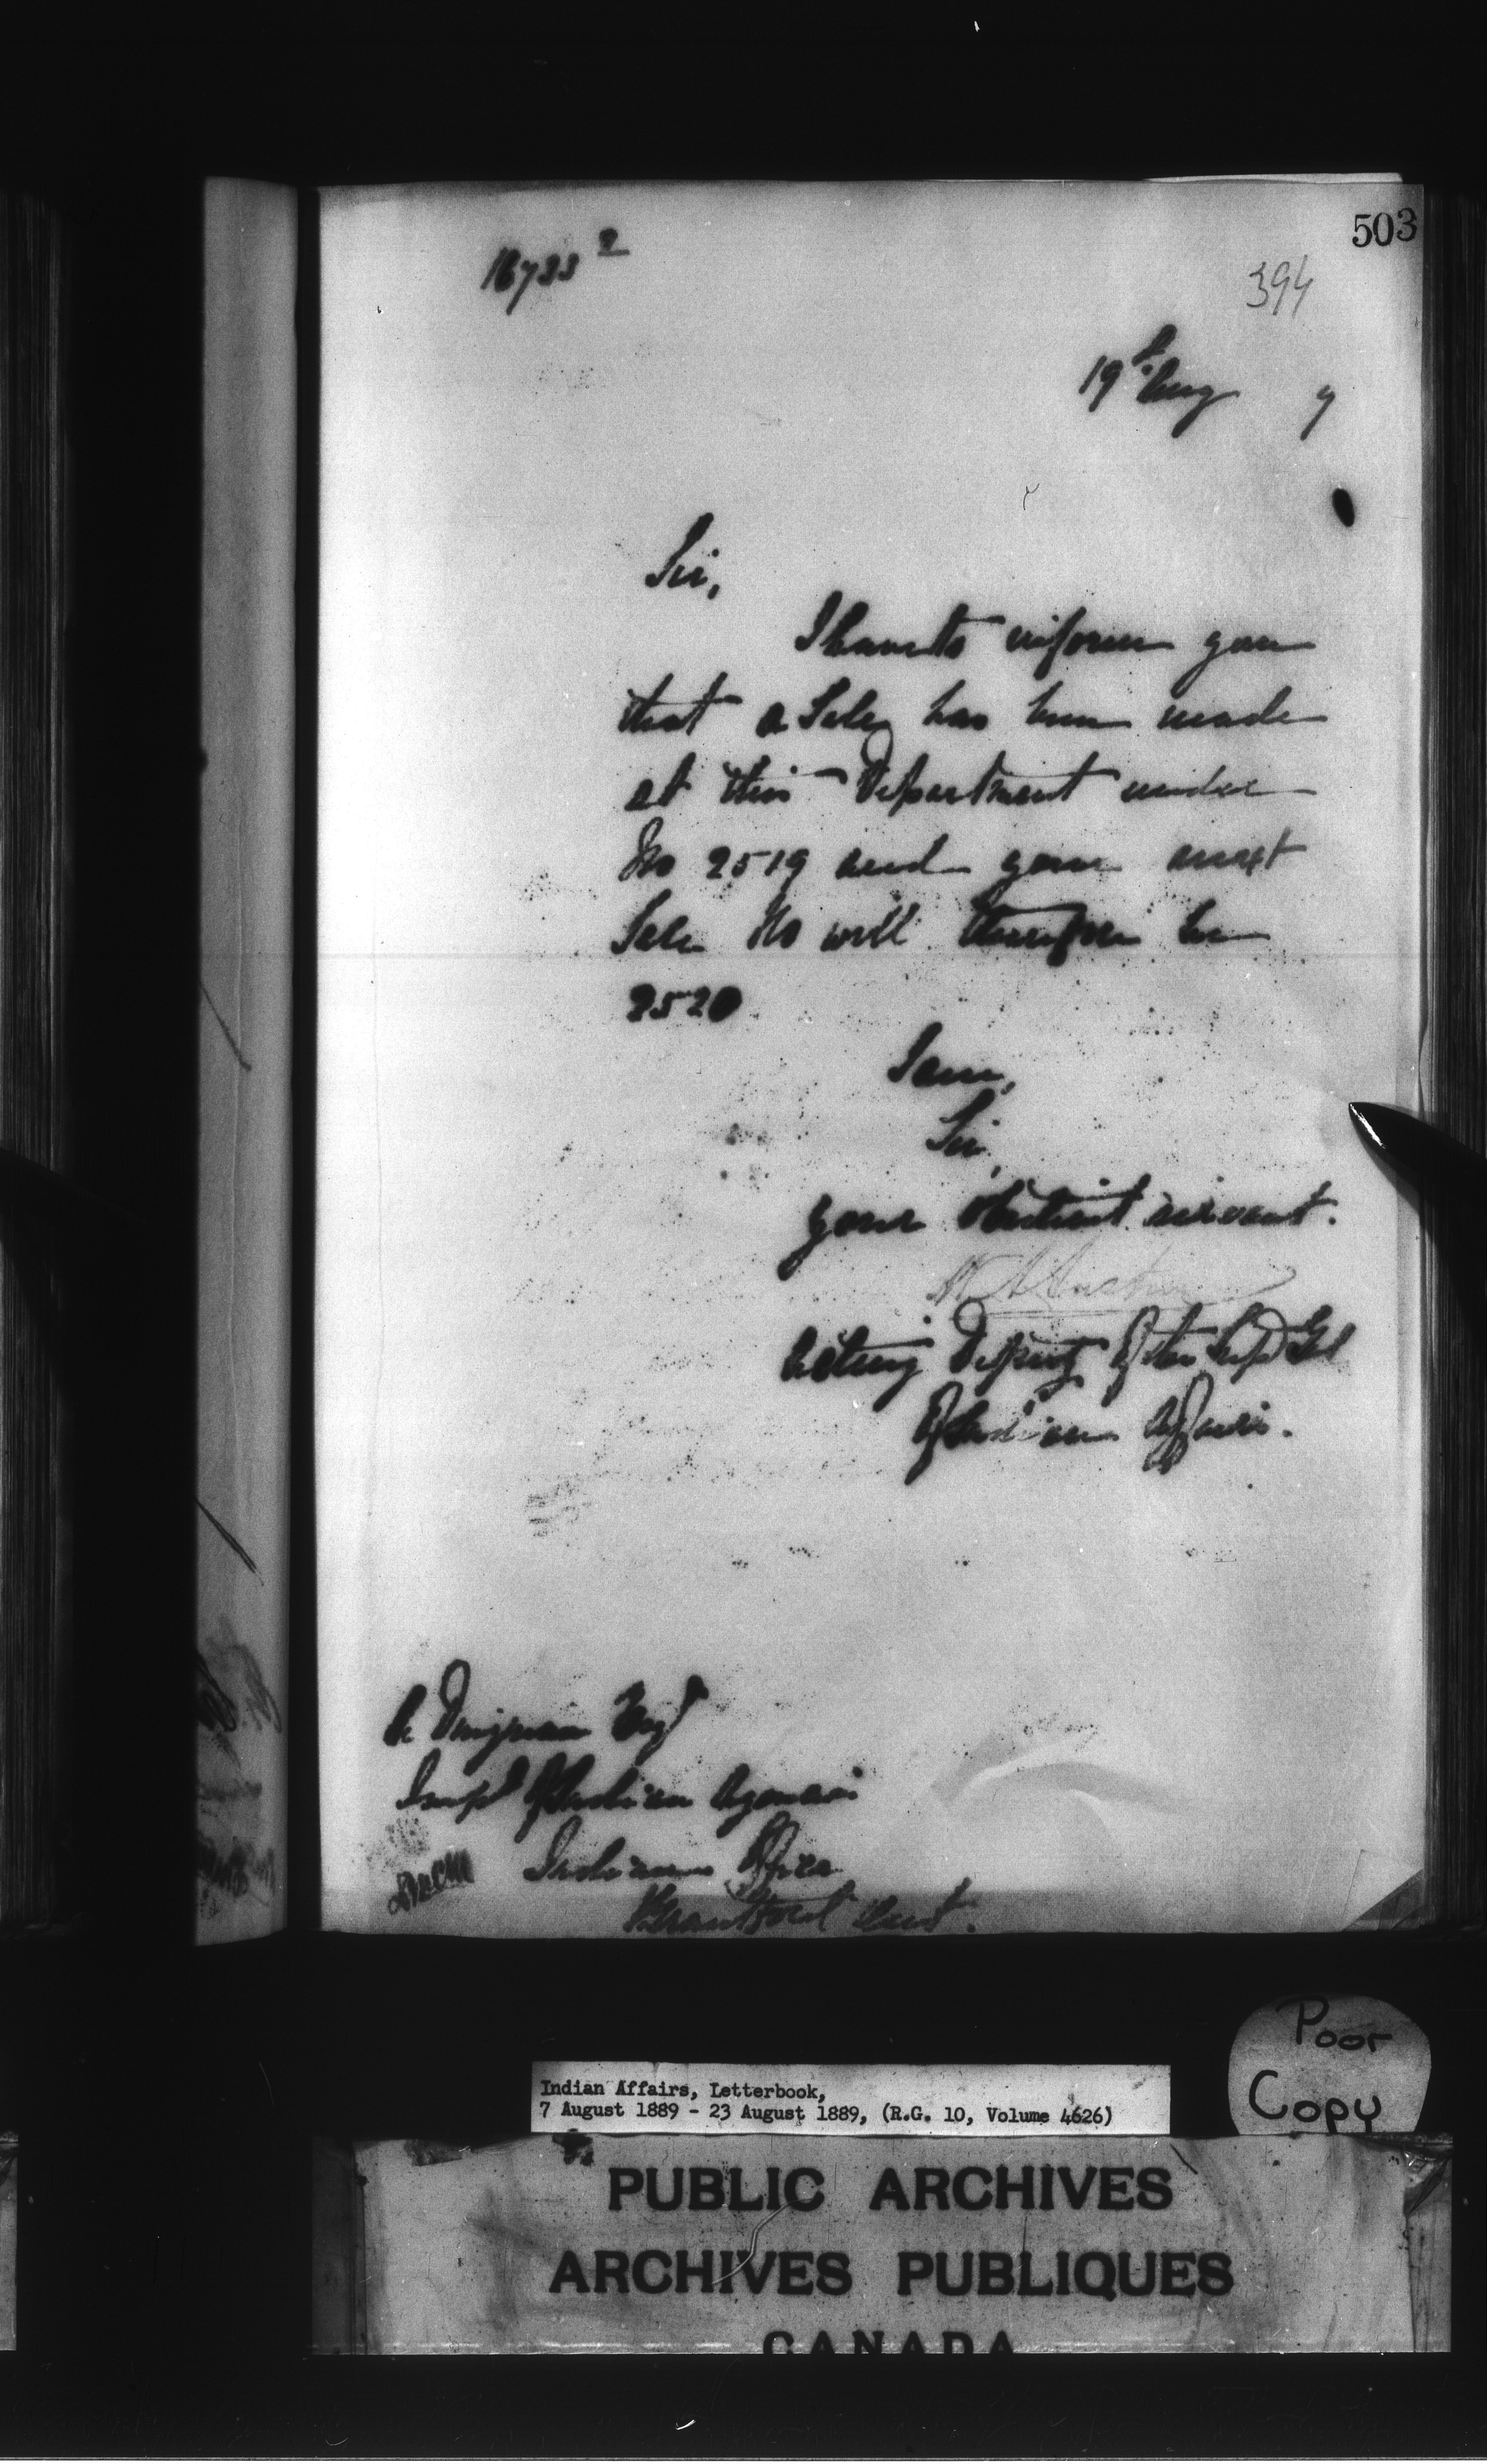 503
16733 2
394
19th Aug 9
Sir,
I have to inform you
that a Sale has been made
at this Department under
No 2519 and your next
Sale No will therefore be
2520
I am,
Sir,
your obedient servant.
Acting Deputy of the Supt Genl
of Indian Affairs.
A Dingman Esqr
Inspr of Indian Agencies
Indian Office
Brantford Ont.
Poor
Copy
Indian Affairs, Letterbook,
7 August 1889 - 23 August 1889, (R.G. 10, Volume 4626)
PUBLIC ARCHIVES
ARCHIVES PUBLIQUES
CANADA